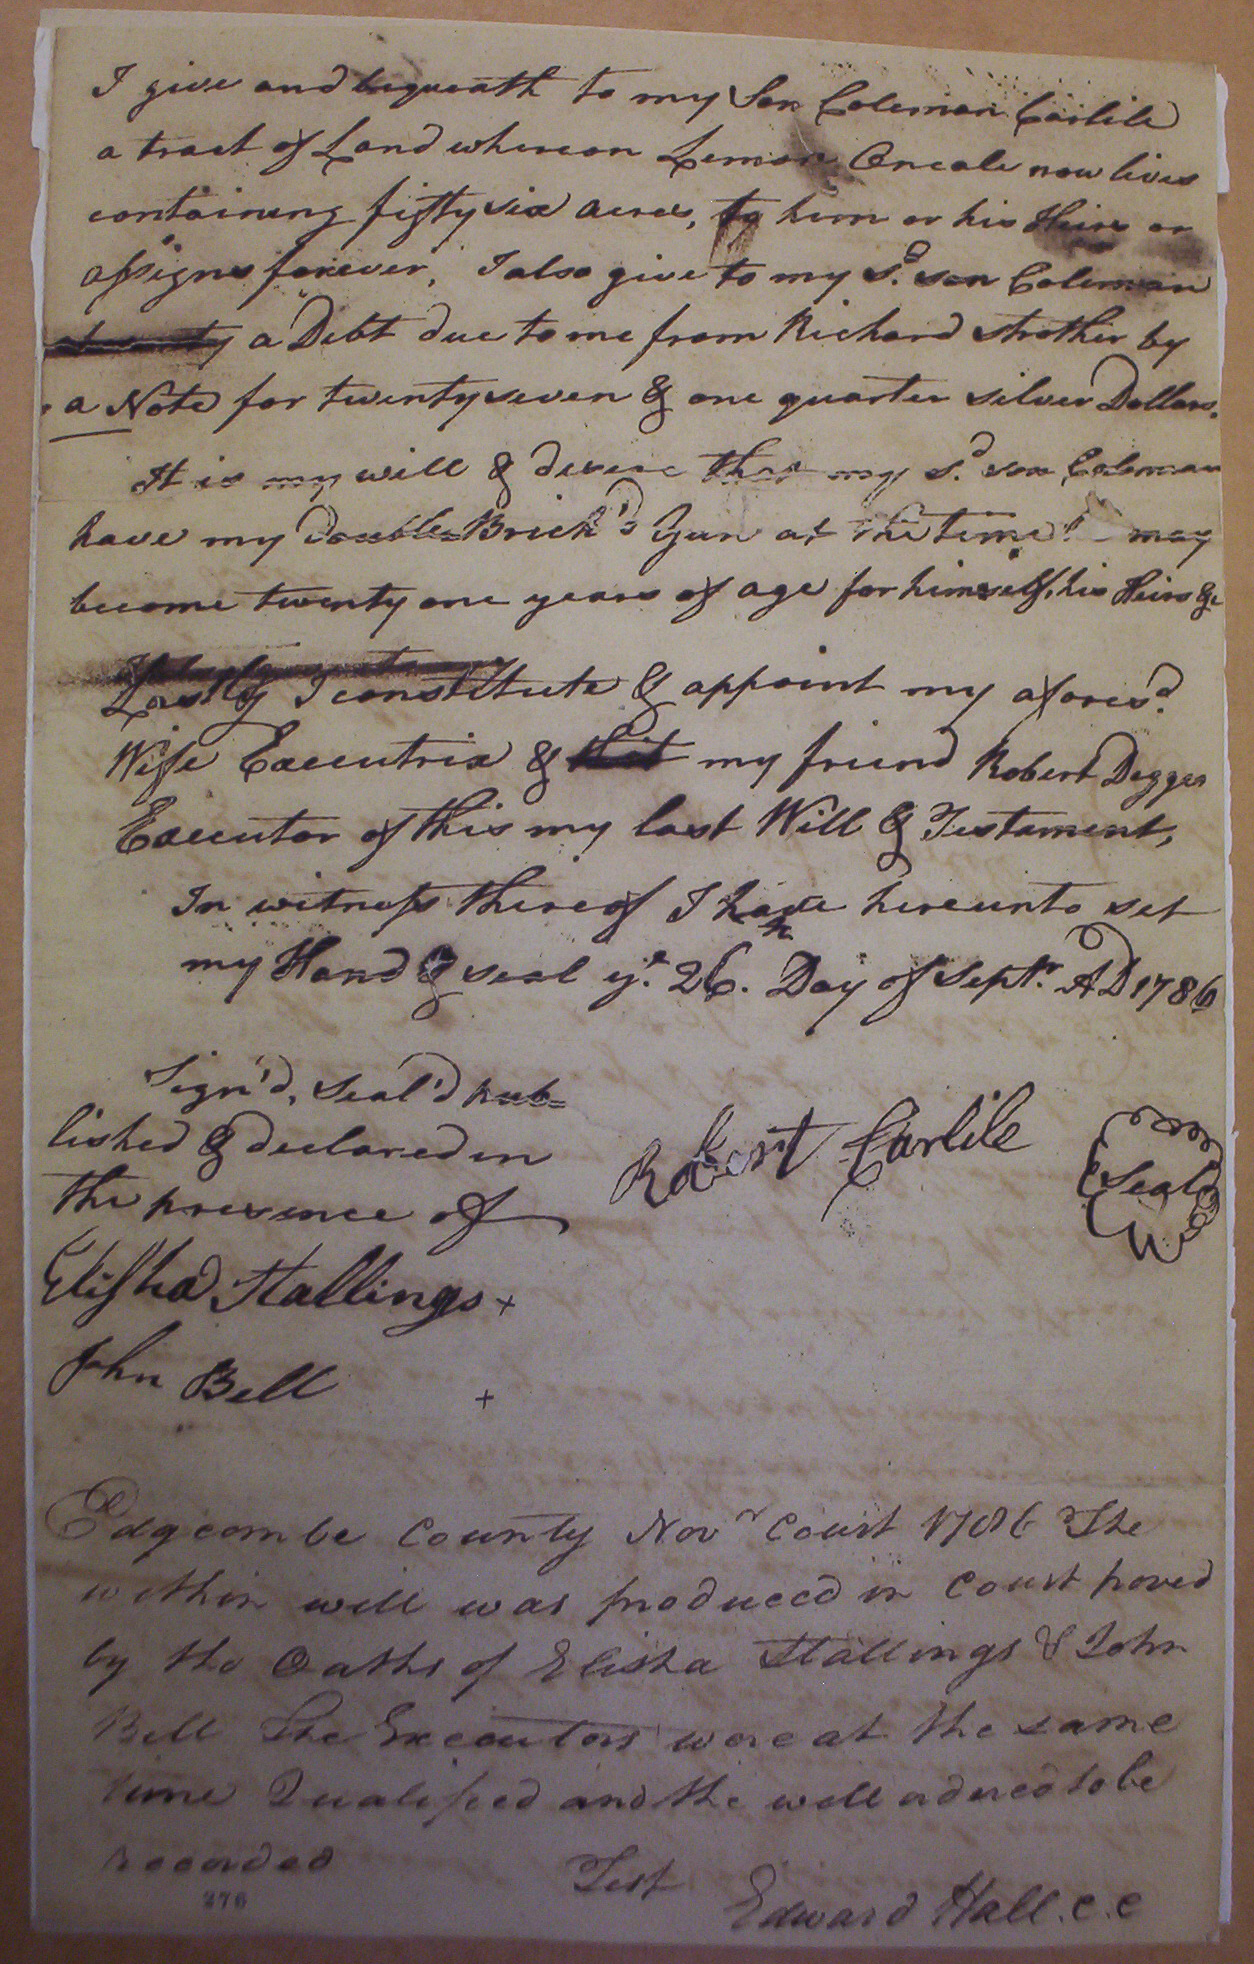 I give and bequeath to my Son Coleman Carlile
a tract of Land whereon Lemon Oneale now lives
containing fifty six acres, to him or his Heirs or
assigns forever, I also give to my sd. son Coleman
a Debt due to me from Richard Strother by
a Note for twenty seven & one quarter silver Dollars.
It is my will & desire that my sd. son Coleman
have my double Brich'd Gun at the time may
become twenty one years of age for himself, his Heirs &c
Lastly I constitute & appoint my aforesd.
Wife Executrix & my friend Robert Digges
Executor of this my last Will & Testament,
In witness thereof I have hereunto set
my Hand & seal ye. 26.th Day of Septr. AD 1786
Sign'd, Seal'd pub=
lished & declared in
the presence of
Robert Carlile
Seal
Elisha Stallings +
John Bell +
Edgcombe County Novr Court 1786 The
within will was produced in Court proved
by the Oaths of Elisha Stallings & John
Bell The Executors were at the same
time Qualifeed and the will ordered to be
recorded
276
Test
Edward Hall. C. C